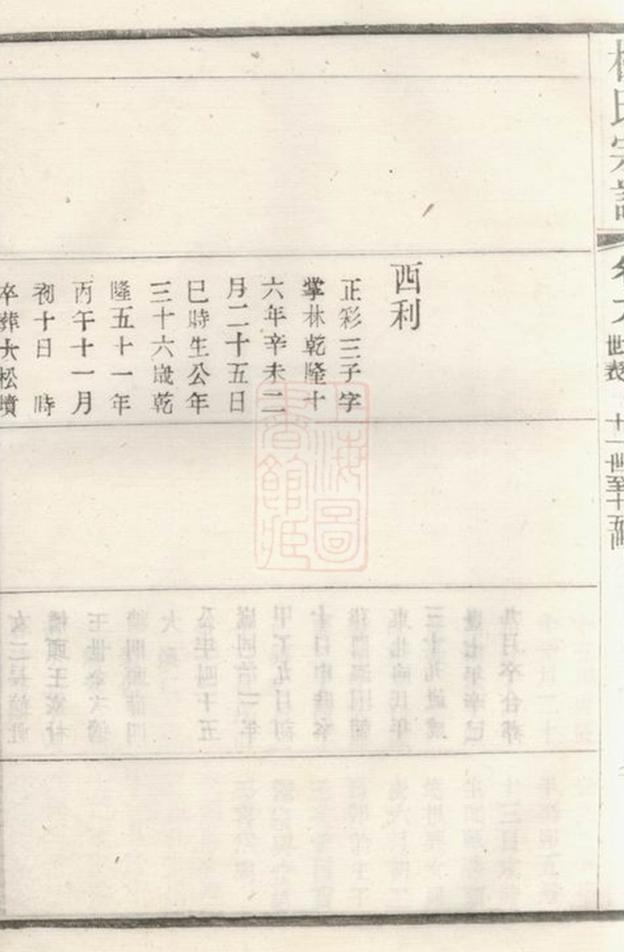 氏宗譜
世表 十一世至十五世
西利
正彩三子字
掌林乾隆十
六年辛未二
月二十五日
巳時生公年
三十六歲乾
隆五十一年
丙午十一月
初十日　時
卒葬大松墳
上海圖
書館藏